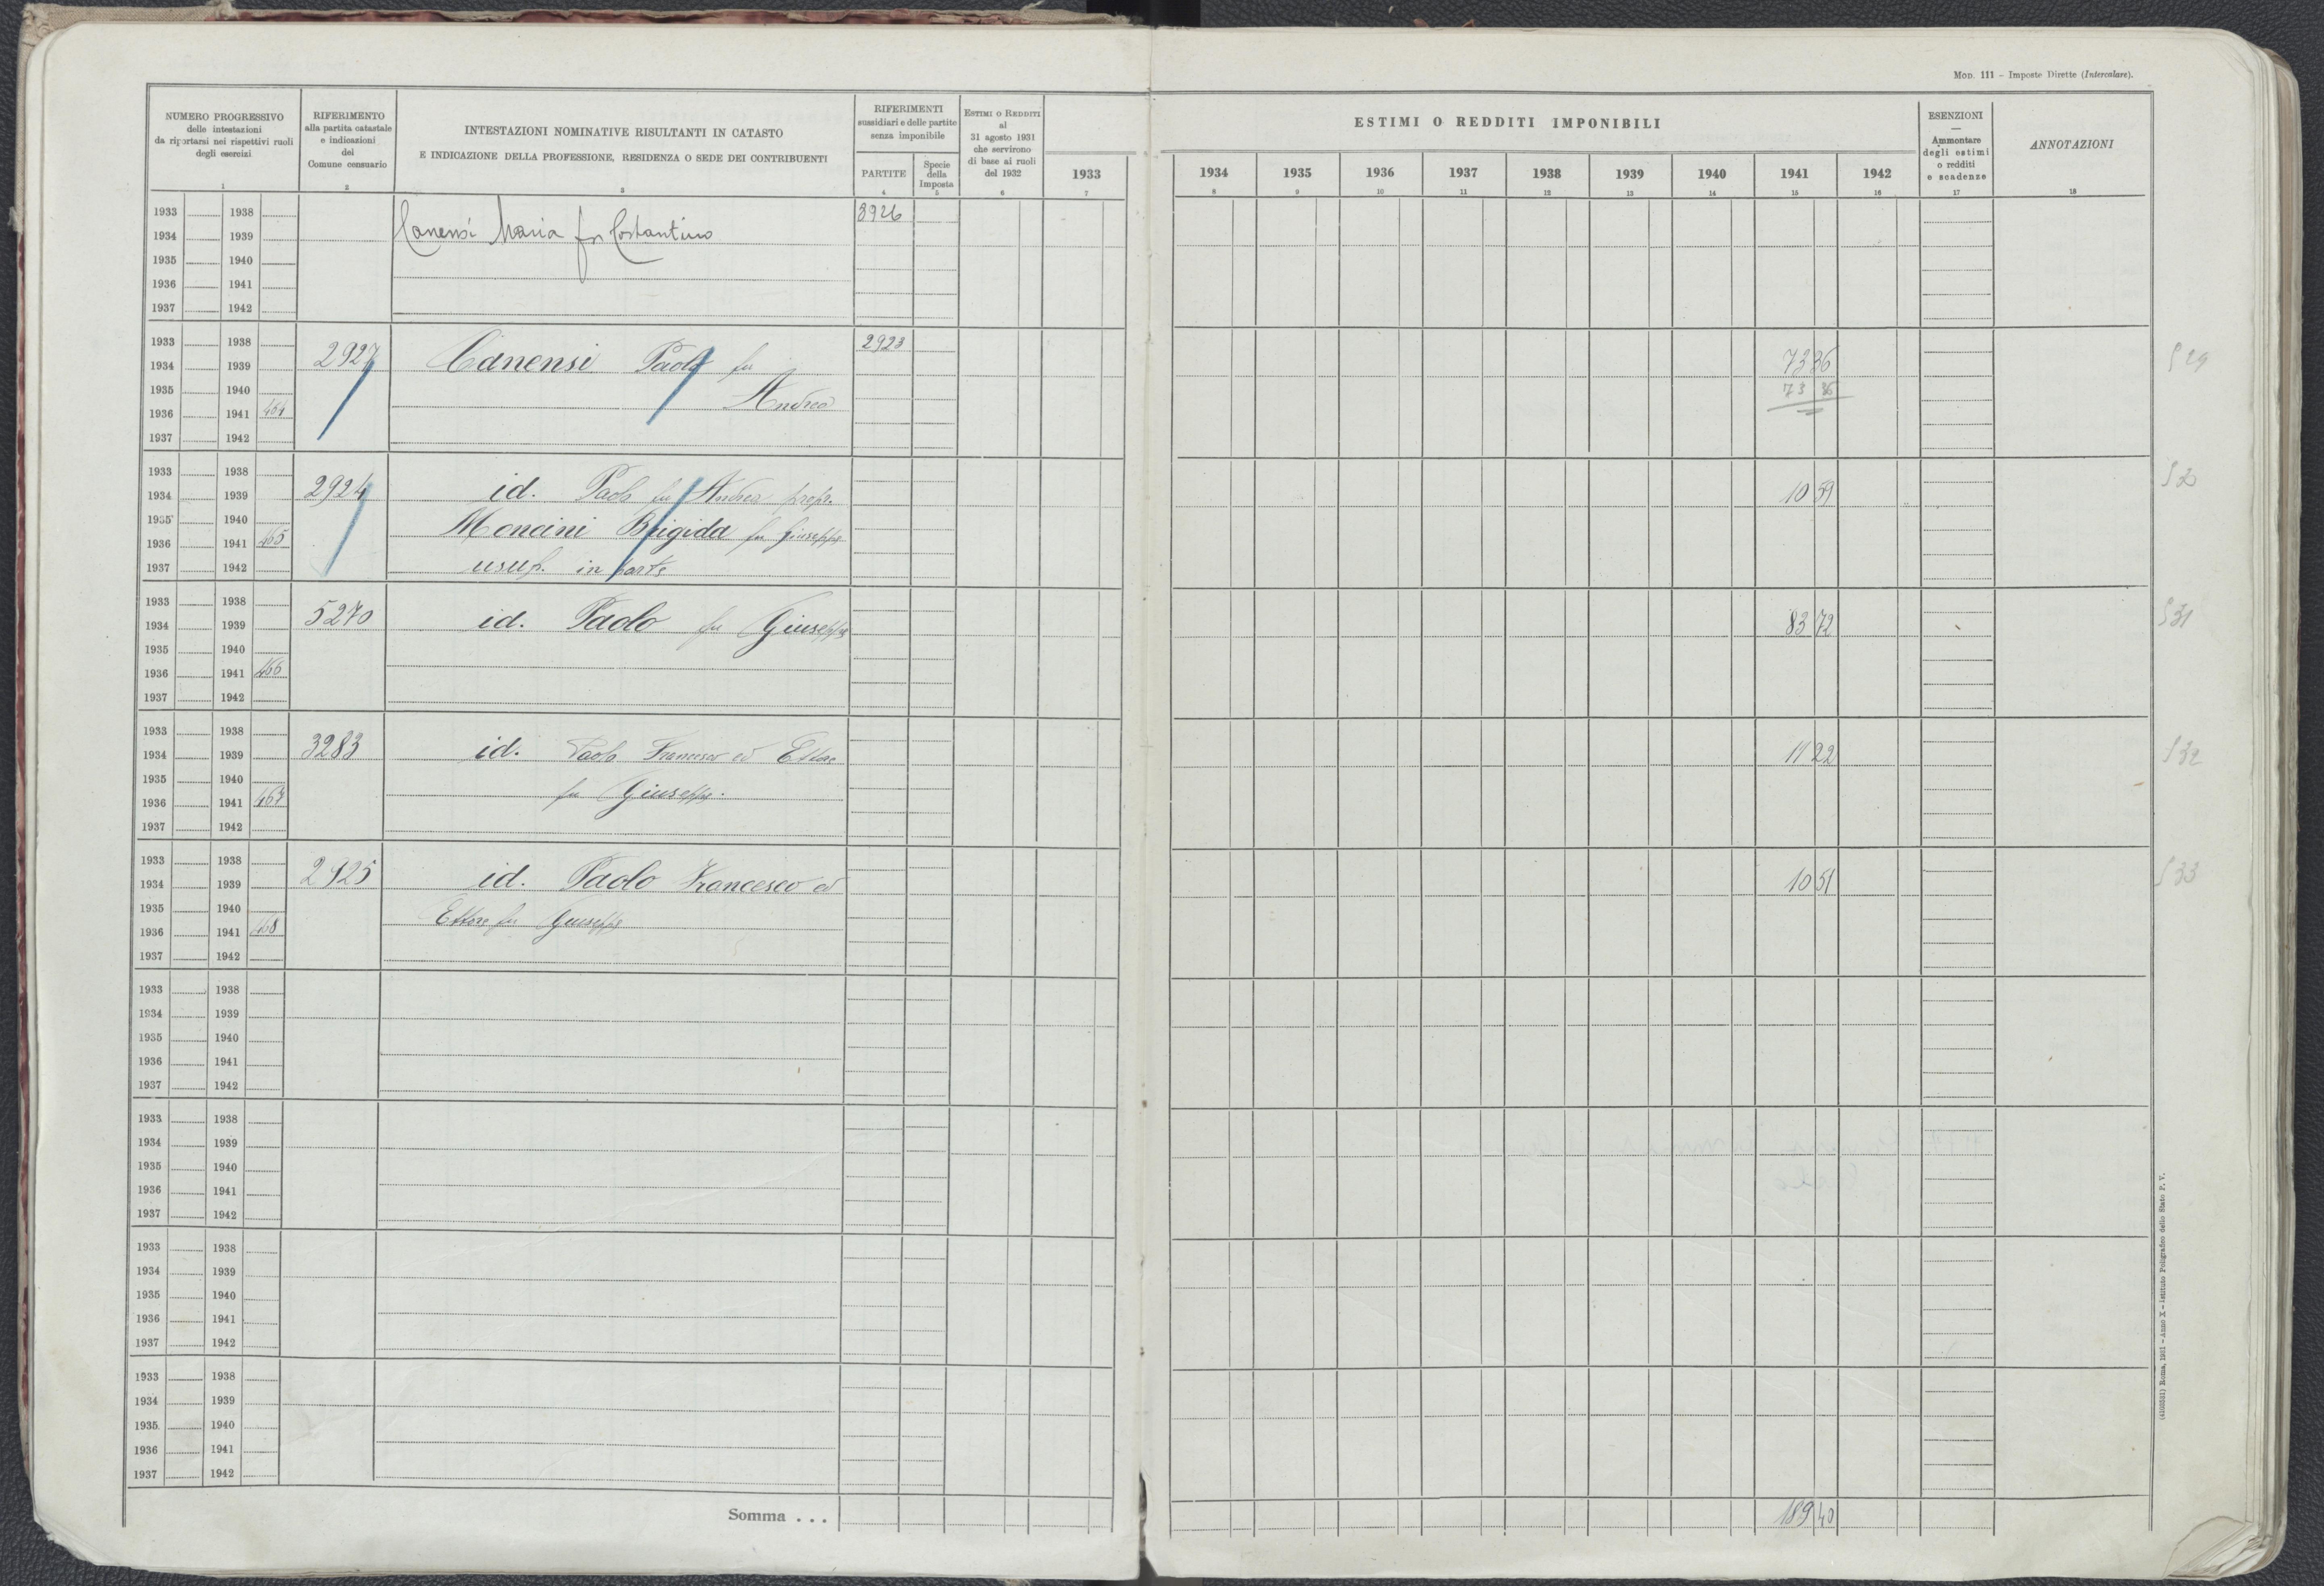 Mod. 111 – Imposte Dirette (Intercalare).
NUMERO PROGRESSIVO
delle intestazioni
da riportarsi nei rispettivi ruoli
degli esercizi
1
RIFERIMENTO
alla partita catastale
e indicazioni
del
Comune censuario
2
INTESTAZIONI NOMINATIVE RISULTANTI IN CATASTO
E INDICAZIONE DELLA PROFESSIONE, RESIDENZA O SEDE DEI CONTRIBUENTI
3
RIFERIMENTI
sussidiari e delle partite
senza imponibile
PARTITE
4
Specie
della
Imposta
5
Estimi o Redditi
al
31 agosto 1931
che servirono
di base ai ruoli
del 1932
6
1933
7
ESTIMI O REDDITI IMPONIBILI
1934 1935 1936 1937 1938 1939 1940 1941 1942
8 9 10 11 12 13 14 15 16
ESENZIONI
—
Ammontare
degli estimi
o redditi
e scadenze
17
ANNOTAZIONI
18
1933 1938 3926
1934 1939 Canensi Maria fu Costantino
1935 1940
1936 1941
1937 1942
1933 1938 2923
1934 1939 2927 Canensi Paolo fu 73 36 529
1935 1940 73 36
1936 1941 464 Andrea
1937 1942
1933 1938
1934 1939 2924 id. Paolo fu Andrea propr. 10 59
1935 1940 Moncini Brigida fu Giuseppe
1936 1941 465
1937 1942 usuf. in parte
1933 1938
1934 1939 5270 id. Paolo fu Giuseppe 83 72 531
1935 1940
1936 1941 466
1937 1942
1933 1938
1934 1939 3283 id. Paolo Francesco ed Ettore 11 22 532
1935 1940
1936 1941 467 fu Giuseppe.
1937 1942
1933 1938
1934 1939 2925 id. Paolo Francesco ed 10 51 533
1935 1940 Ettore fu Giuseppe
1936 1941 468
1937 1942
1933 1938
1934 1939
1935 1940
1936 1941
1937 1942
1933 1938
1934 1939
1935 1940
1936 1941
1937 1942
1933 1938
1934 1939
1935 1940
1936 1941
1937 1942
1933 1938
1934 1939
1935 1940
1936 1941
1937 1942
Somma . . . 189 40